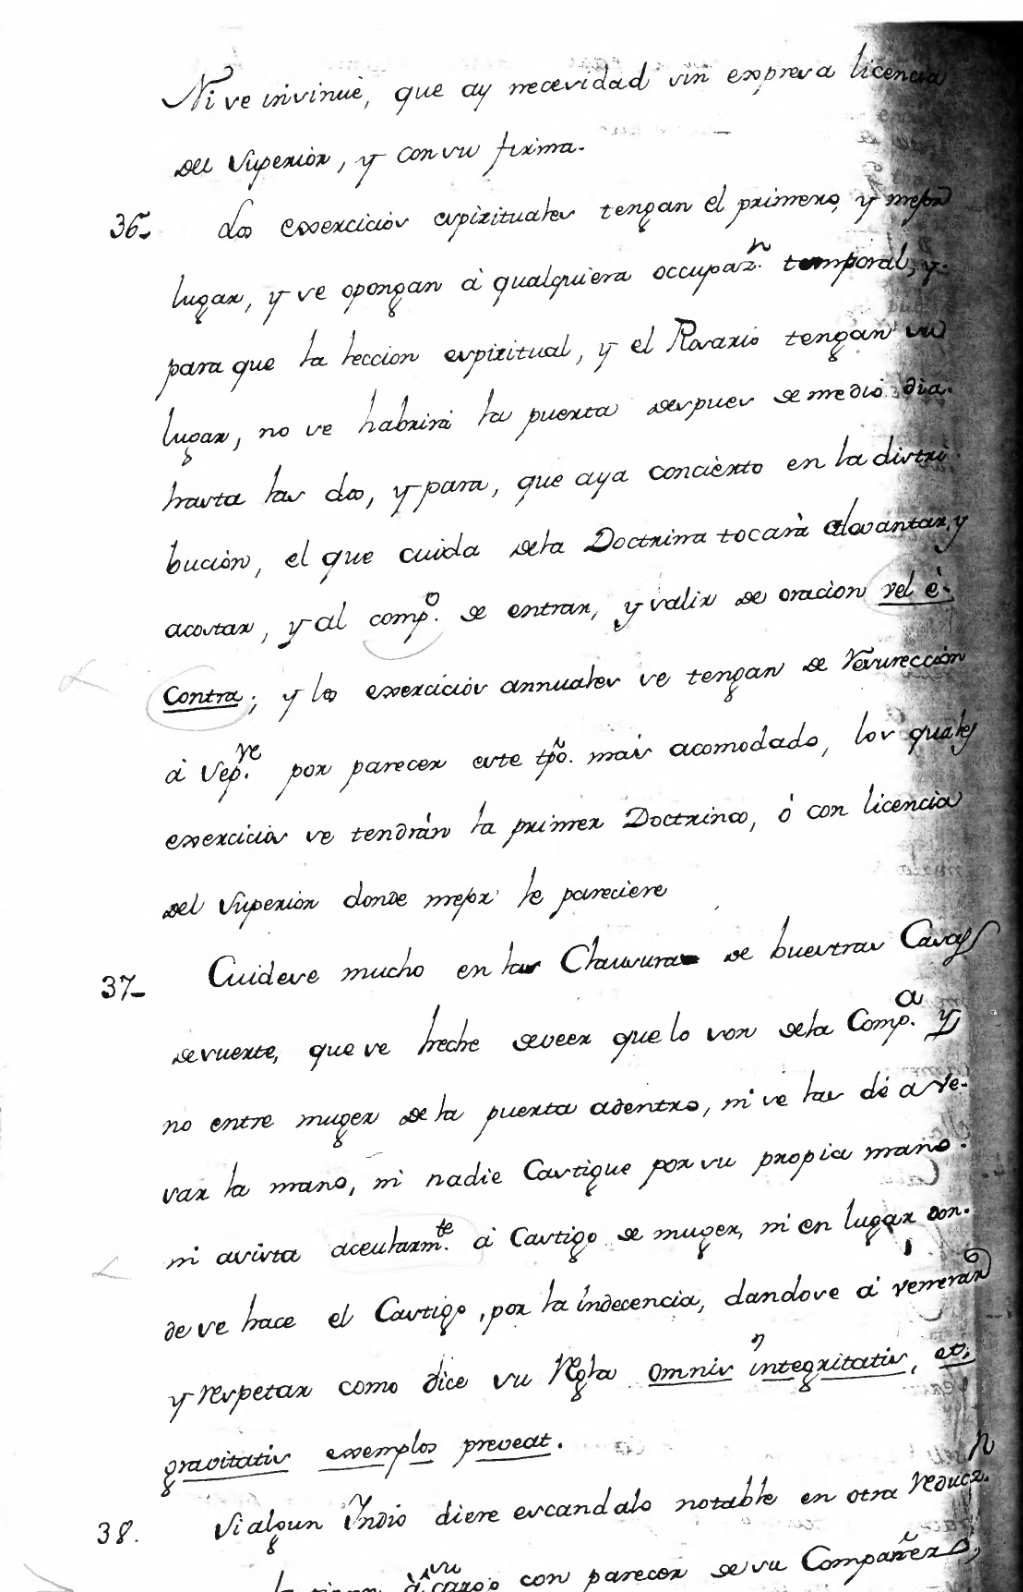 Ni se insinuè, que ay necesidad sin expresa licencia
del Superior, y con su firma.
36- Los exercicios espirituales tengan el primero, y mejor
lugar, y se opongan à qualquiera occupaz.n temporal, y.
para que la leccion espiritual, y el Rosario tengan su
lugar, no se habrirà la puerta despues de medio dia.
hasta las dos, y para, que aya concierto en la distri
bucion, el que cuida dela Doctrina tocarà alevantar, y
acostar, y al comp.o de entrar, y salir de oracion vel è.
contra; y los exercicios annuales se tengan de resurección
à Sep.re por parecer este tpõ. mas acomodado, los quales
exercicios se tendràn la primer Doctrina, ò con licencia
del Superior donde mejor le pareciere
37- Cuidese mucho en las Clausuras de buestras Casas
desuerte, que se heche deveer que lo son dela Comp.a y
no entre muger de la puerta adentro, ni se les dè a ve-
sar la mano, ni nadie Castigue por su propia mano.
ni asista aceularm.te à Castigo de muger, ni en lugar don.
de se hace el Castigo, por la indecencia, dandose à venerar
y respetar como dice su Regla omnis integritatis, et.
gravitatis exemplos preveat.
38. Si algun Indio diere escandalo notable en otra reducz.n
à su cargo con parecer de su Compañero,